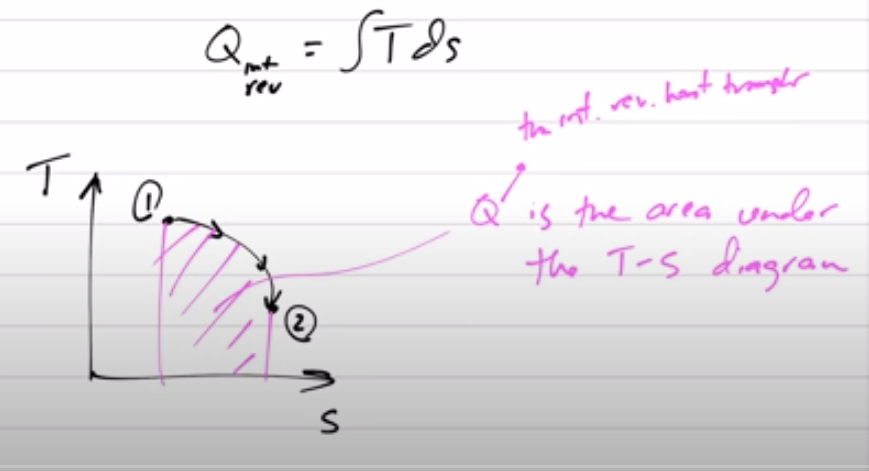 Q int rev = ∫T ds
the int. rev. heat transfer
T
①
Q is the area under
the T-S diagram
②
s